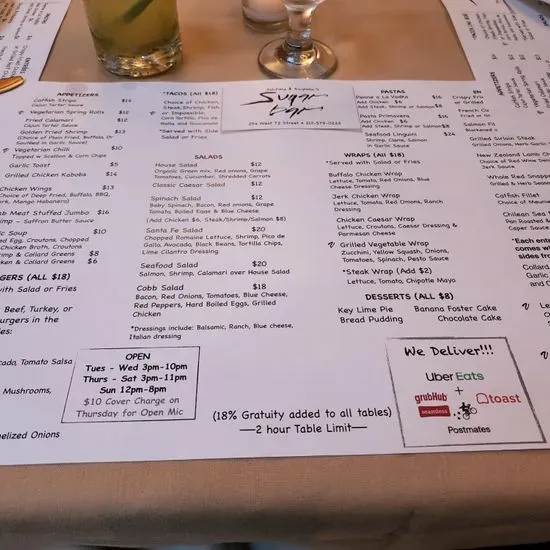 APPETIZERS
Catfish Strips $14
Cajun Tartar Sauce
Vegetarian Spring Rolls $12
Fried Calamari $12
Cajun Tartar Sauce
Golden Fried Shrimp $13
(Choice of Plain Fried, Buffalo, Or
Sautéed in Garlic Sauce)
Vegetarian Chili $10
Topped w Scallion & Corn Chips
Garlic Toast $5
Grilled Chicken Kabobs $14
Chicken Wings $13
Choice of Deep Fried, Buffalo, BBQ,
Jerk, Mango Habanero)
Meat Stuffed Jumbo $16
Shrimp - Saffron Butter Sauce
Soup $10
Egg, Croutons, Chopped
Chicken Broth, Croutons
Shrimp & Collard Greens $8
Chicken & Collard Greens $6
(ALL $18)
with Salad or Fries
Beef, Turkey, or
burgers in the
Tomato Salsa
Mushrooms,
Onions
*TACOS (All $18)
Choice of Chicken,
Steak, Shrimp, Fish
or Impossible.
Corn Tortilla, Pico de
Gallo, and Guacamole
*Served with Side
Salad or Fries
SALADS
House Salad $12
Organic Green mix, Red onions, Grape
Tomatoes, Cucumber, Shredded Carrots
Classic Caesar Salad $12
Spinach Salad $12
Baby Spinach, Bacon, Red onions, Grape
Tomato, Boiled Eggs & Blue Cheese
(Add Chicken $6, Steak/Shrimp/Salmon $8)
Santa Fe Salad $20
Chopped Romaine Lettuce, Shrimp, Pico de
Gallo, Avocado, Black Beans, Tortilla Chips,
Lime Cilantro Dressing
Seafood Salad $20
Salmon, Shrimp, Calamari over House Salad
Cobb Salad $18
Bacon, Red Onions, Tomatoes, Blue Cheese,
Red Peppers, Hard Boiled Eggs, Grilled
Chicken
*Dressings include: Balsamic, Ranch, Blue cheese,
Italian dressing
Sugar Bar
254 West 72 Street • 212-579-0222
PASTAS
Penne a La Vodka $16
Add Chicken $6
Add Steak, Shrimp or Salmon $8
Pasta Primavera $16
Add Chicken $6
Add Steak, Shrimp or Salmon $8
Seafood Linguini $24
Shrimp, Clams, Salmon
in Garlic Sauce
WRAPS (All $18)
*Served with Salad or Fries
Buffalo Chicken Wrap
Lettuce, Tomato, Red Onions, Blue
Cheese Dressing
Jerk Chicken Wrap
Lettuce, Tomato, Red Onions, Ranch
Dressing
Chicken Caesar Wrap
Lettuce, Croutons, Caesar Dressing &
Parmesan Cheese
Grilled Vegetable Wrap
Zucchini, Yellow Squash, Onions,
Tomatoes, Spinach, Pesto Sauce
*Steak Wrap (Add $2)
Lettuce, Tomato, Chipotle Mayo
DESSERTS (ALL $8)
Key Lime Pie Banana Foster Cake
Bread Pudding Chocolate Cake
EN
Crispy Frie
or Grilled
French Cu
Salmon Fil
Blackened o
Grilled Sirloin Steak
Grilled Onions, Herb Garlic
New Zealand Lamb C
Choice of Red Wine Dem
Jerk Sauce
Whole Red Snapper
Grilled & Herb Season
Catfish Fillet
Choice of
Chilean Sea
Pan Roasted
Caper Sauce
*Each ent
comes wi
sides from
Collard
Garlic
and
OPEN
Tues - Wed 3pm-10pm
Thurs - Sat 3pm-11pm
Sun 12pm-8pm
$10 Cover Charge on
Thursday for Open Mic
(18% Gratuity added to all tables)
—2 hour Table Limit—
We Deliver!!!
Uber Eats
+
grubHub
seamless
toast
Postmates